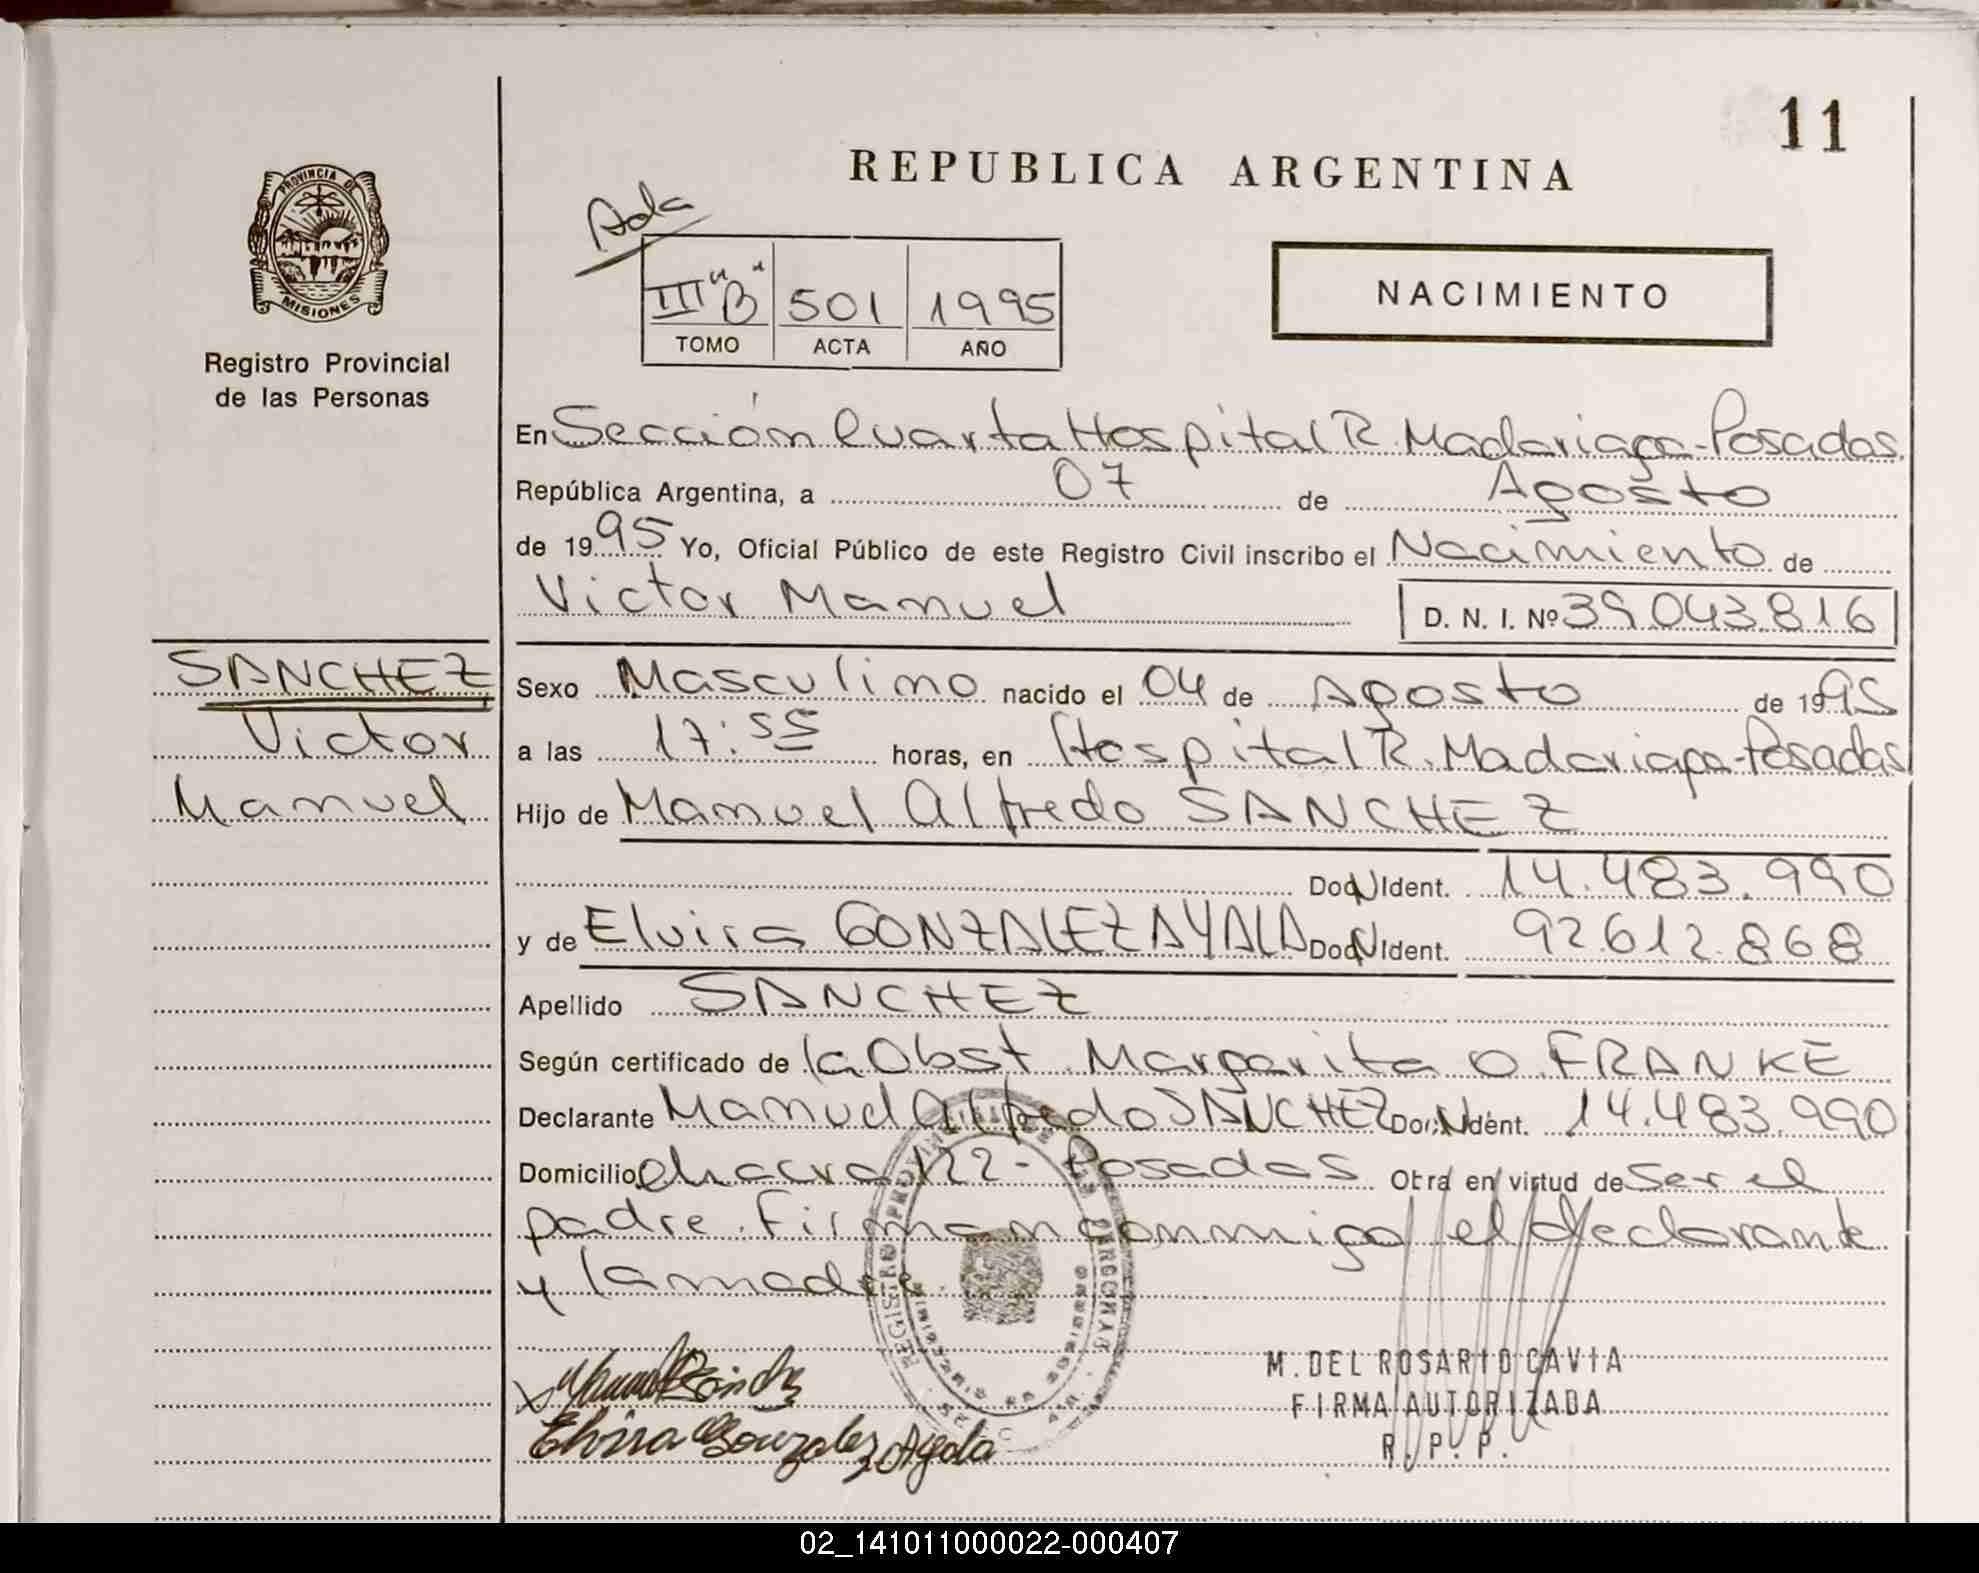 11
REPUBLICA ARGENTINA
PROVINCIA DE
MISIONES
Registro Provincial
de las Personas
III "B" 501 1995
TOMO ACTA AÑO
NACIMIENTO
En Sección Cuarta Hospital R. Madariaga-Posadas.
República Argentina, a 07 de Agosto
de 1995 Yo, Oficial Público de este Registro Civil inscribo el Nacimiento de
Victor Manuel D. N. I. Nº 39.043.816
SANCHEZ
Victor
Manuel
Sexo Masculino nacido el 04 de Agosto de 1995
a las 17:55 horas, en Hospital R. Madariaga-Posadas
Hijo de Manuel Alfredo SANCHEZ
Doc. N Ident. 14.483.990
y de Elvira GONZALEZ AYALA Doc. N Ident. 92.612.868
Apellido SANCHEZ
Según certificado de la Obst. Margarita O. FRANKE
Declarante Manuel Alfredo SANCHEZ Doc. N Ident. 14.483.990
Domicilio Chacra 122 - Posadas Obra en virtud de Ser el
padre. Firman conmigo el declarante
y la madre.
M. DEL ROSARIO CAVIA
FIRMA AUTORIZADA
R. P. P.
Elvira Gonzalez Ayala
02_141011000022-000407